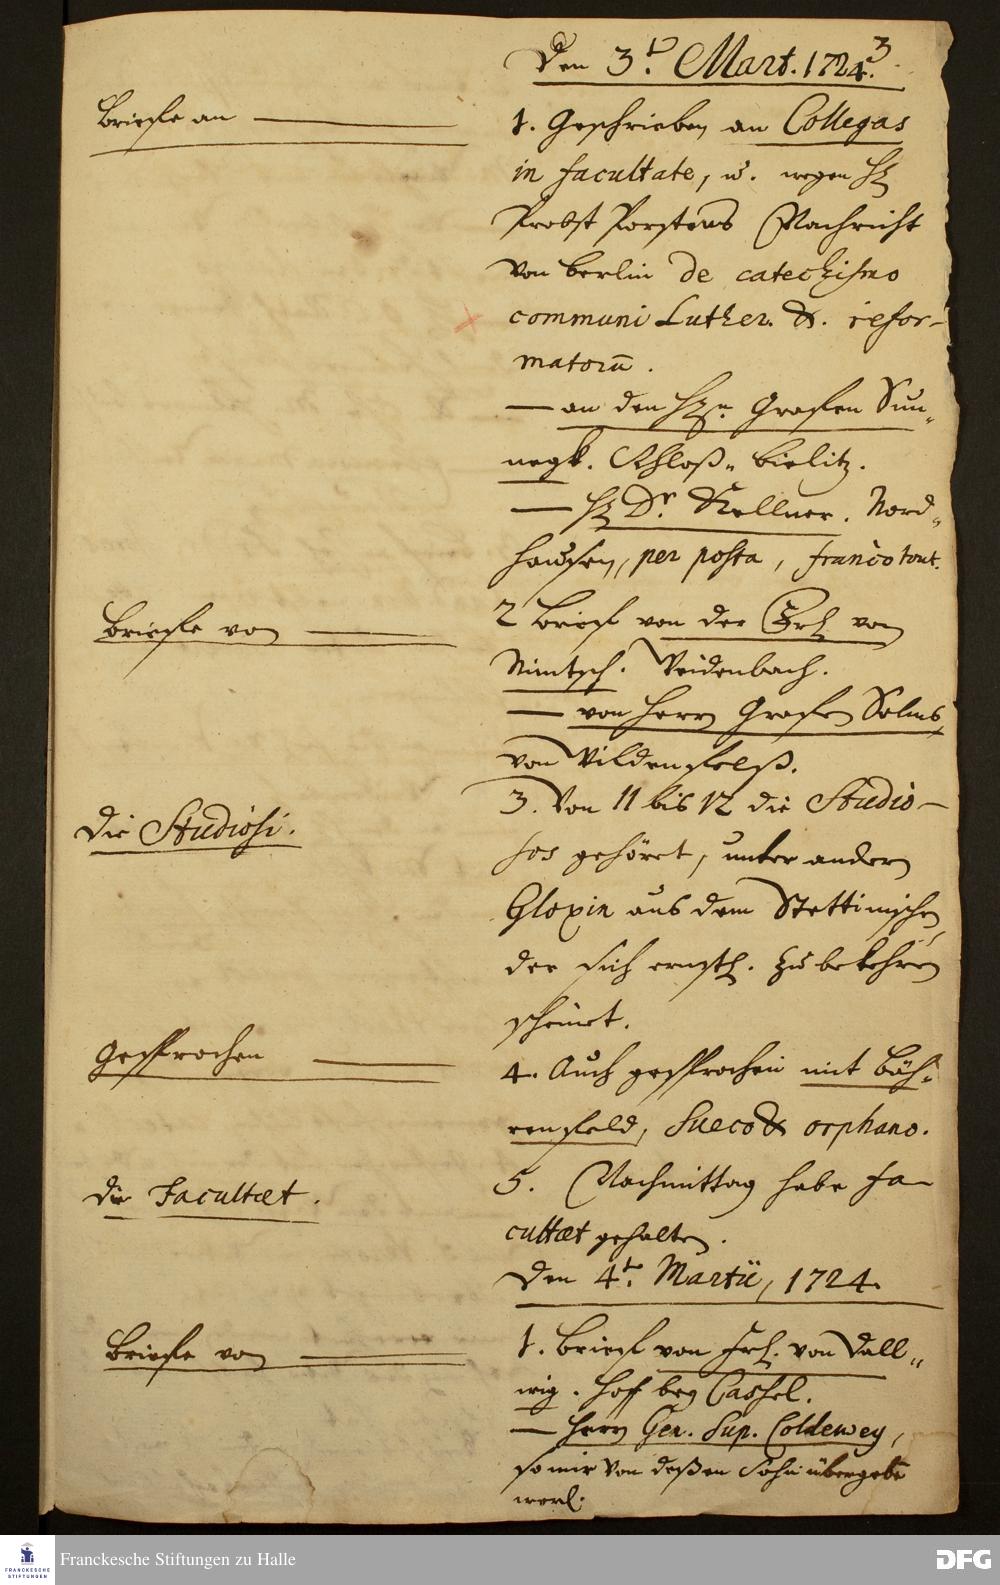 Den 3t. Mart. 1724. 3
Briefe an
1. Geschrieben an Collegas
in facultate, u. wegen H
Probst Porstens Nachricht
von Berlin de catechismo
communi Luther. &. refor-
matorū.
— an den Hrn. Grafen Sun-
negk. Schloß-Bielitz.
— H Dr. Kellner. Nord-
hausen, per posta, franco tout.
Briefe von
2 Brief von der Frl von
Nimtsch. Weidenbach.
— von Herrn Grafen Solms
von Wildenfelß.
Die Studiosi.
3. Von 11 bis 12 die Studio-
sos gehöret, unter andern
Gloxin aus dem Stettinischen,
der sich ernstl. zu bekehren
scheinet.
Gesprochen
4. Auch gesprochen mit Bäh-
renfeld, Sueco & orphano.
Die Facultæt.
5. Nachmittag habe Fa-
cultæt gehalten.
Den 4t. Martii, 1724.
Briefe von
1. Brief von Frl. von Dall-
wig. Hoff bey Cassel.
— Herrn Gen. Sup. Coldewey,
so mir von deßen Sohn übergebē
word.
Franckesche Stiftungen zu Halle
FRANCKESCHE
STIFTUNGEN
DFG